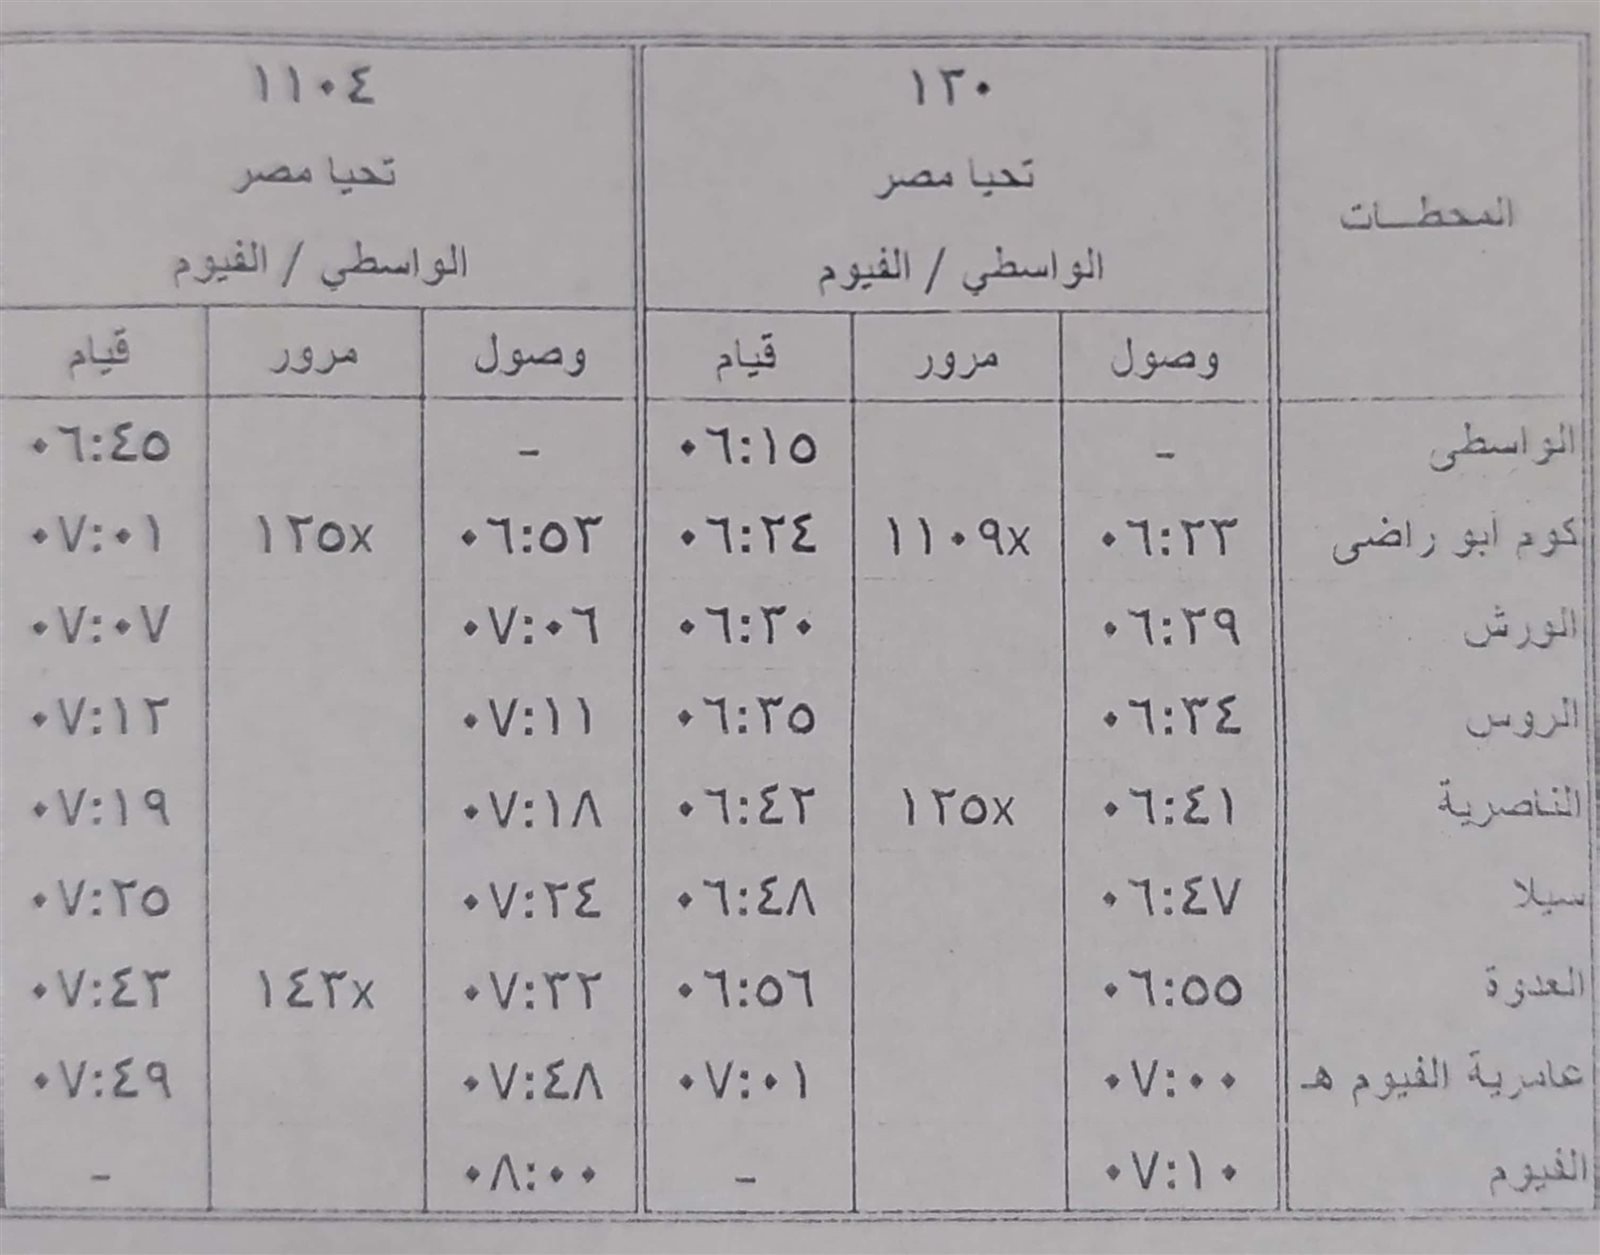 المحطات
١٣٠ ١١٠٤
تحيا مصر تحيا مصر
الواسطي / الفيوم الواسطي / الفيوم
وصول مرور قيام وصول مرور قيام
الواسطى - ٠٦:١٥ - ٠٦:٤٥
كوم أبو راضى ٠٦:٢٣ ١١٠٩x ٠٦:٢٤ ٠٦:٥٣ ١٢٥x ٠٧:٠١
الورش ٠٦:٢٩ ٠٦:٣٠ ٠٧:٠٦ ٠٧:٠٧
الروس ٠٦:٣٤ ٠٦:٣٥ ٠٧:١١ ٠٧:١٢
الناصرية ٠٦:٤١ ١٢٥x ٠٦:٤٢ ٠٧:١٨ ٠٧:١٩
سيلا ٠٦:٤٧ ٠٦:٤٨ ٠٧:٢٤ ٠٧:٢٥
العدوة ٠٦:٥٥ ٠٦:٥٦ ٠٧:٣٢ ١٤٣x ٠٧:٤٣
عامرية الفيوم هـ ٠٧:٠٠ ٠٧:٠١ ٠٧:٤٨ ٠٧:٤٩
الفيوم ٠٧:١٠ - ٠٨:٠٠ -